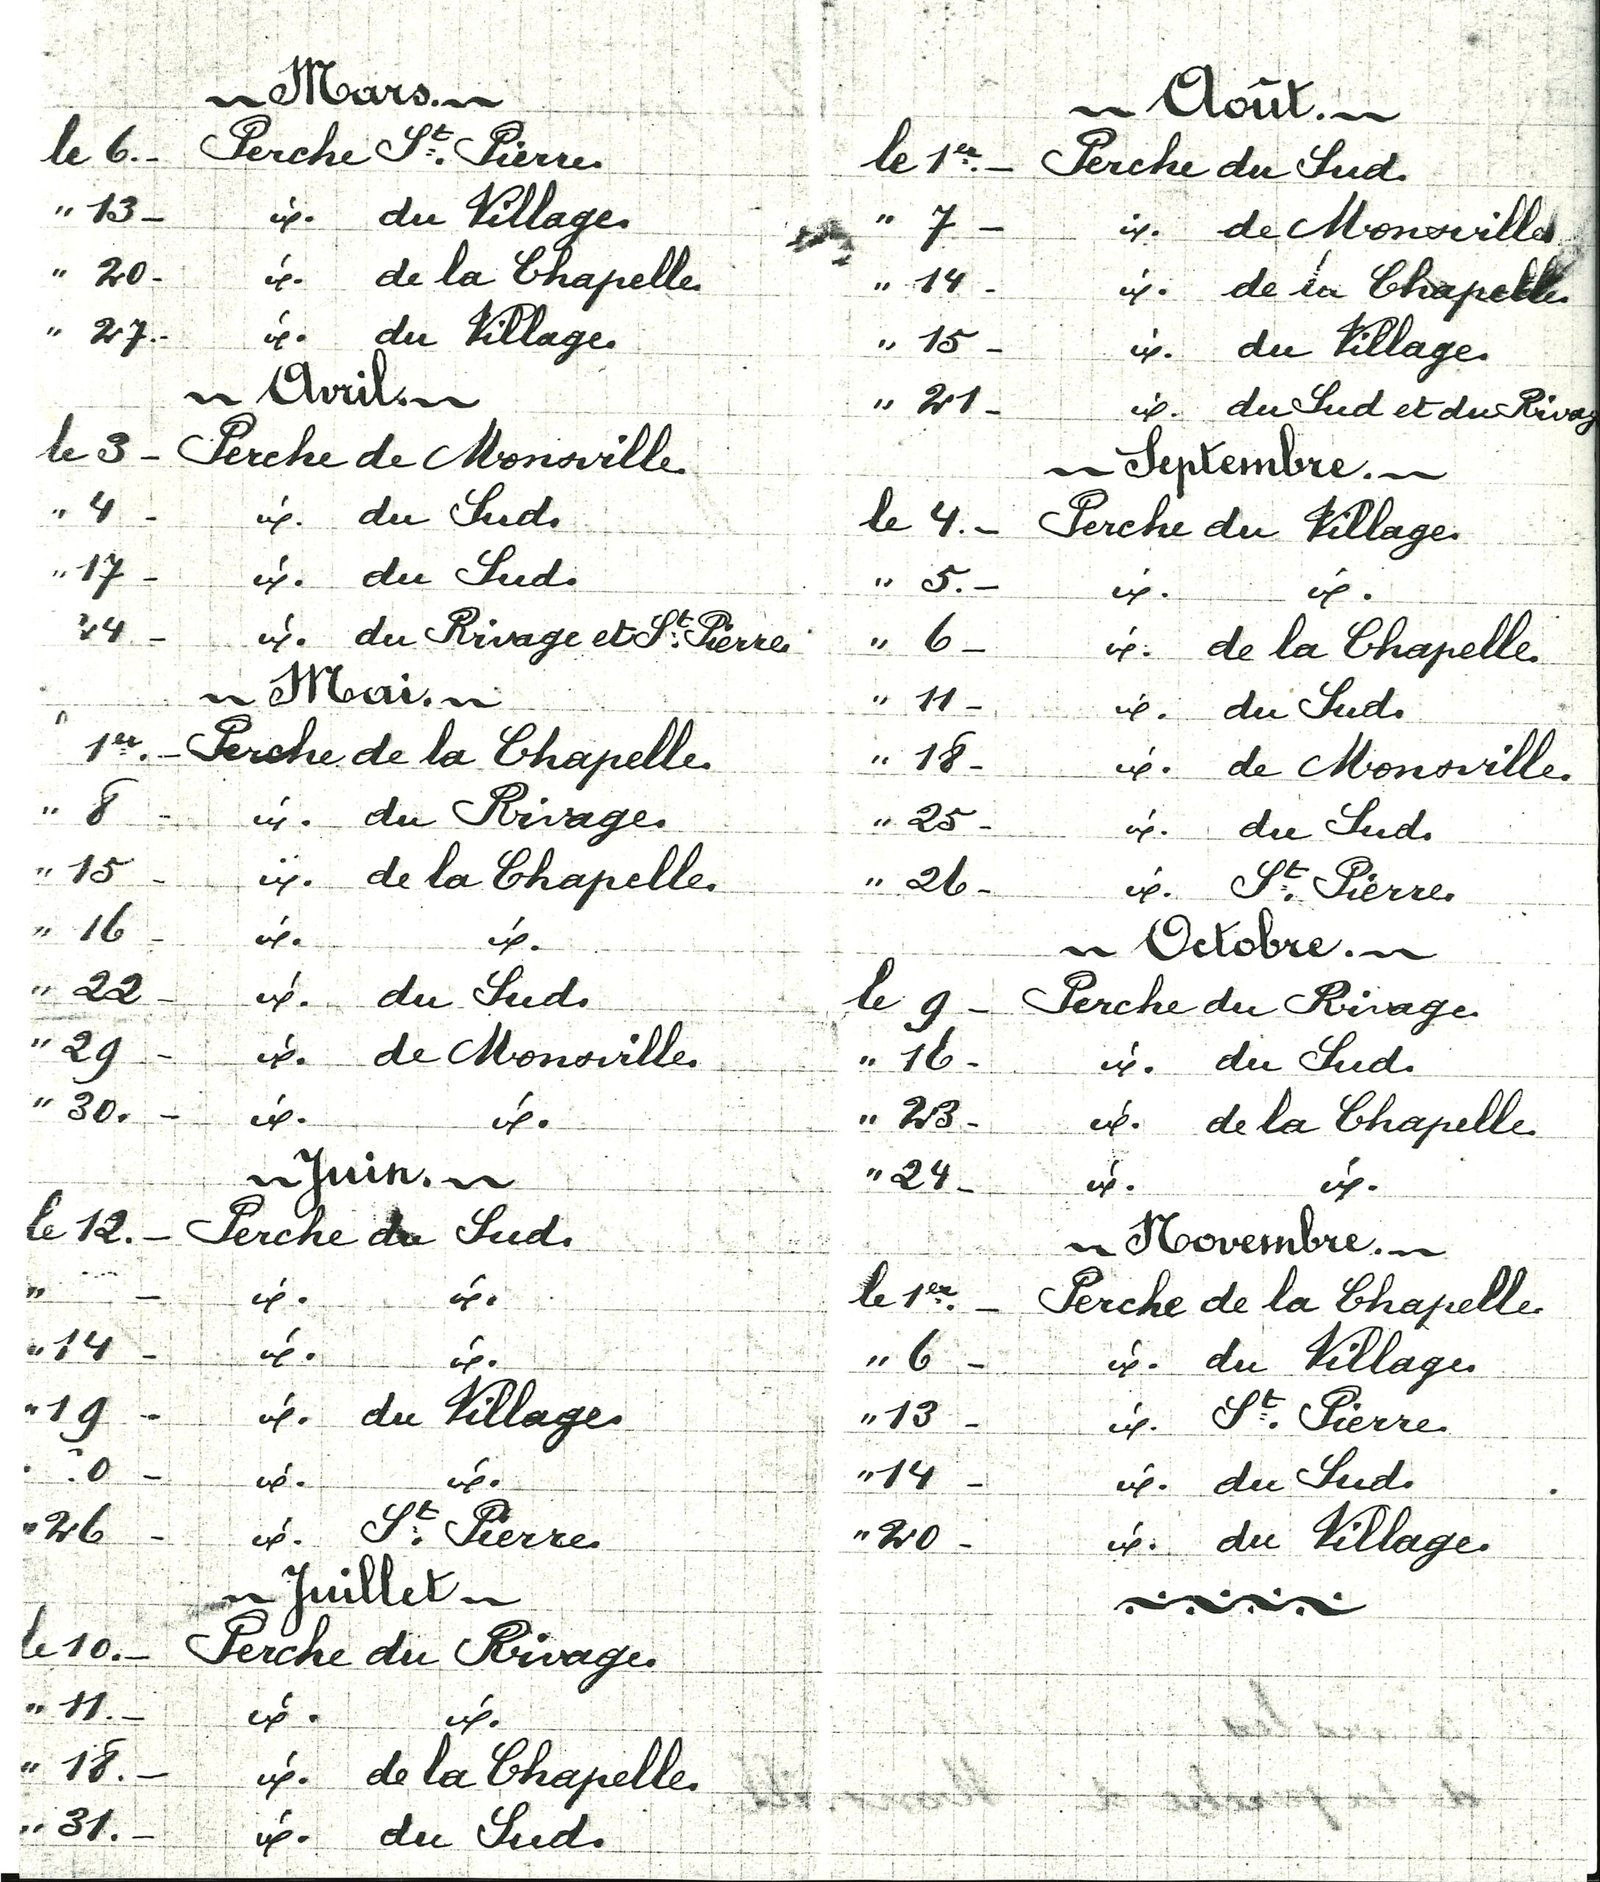 Mars.
le 6.- Perche St. Pierre.
" 13 - id. du Village.
" 20 - id. de la Chapelle.
" 27.- id. du Village.
Avril.
le 3 - Perche de Monsville.
" 4 - id. du Sud.
" 17 - id. du Sud.
24 - id. du Rivage et St. Pierre.
Mai.
1er. - Perche de la Chapelle.
" 8 - id. du Rivage.
" 15 - id. de la Chapelle.
" 16 - id. id.
" 22 - id. du Sud.
" 29 - id. de Monsville.
" 30. - id. id.
Juin.
le 12. - Perche du Sud.
" - id. id.
" 14 - id. id.
" 19 - id. du Village.
0 - id. id.
" 26 - id. St. Pierre.
Juillet
le 10. - Perche du Rivage.
" 11. - id. id.
" 18. - id. de la Chapelle.
" 31. - id. du Sud.
Août.
le 1er. - Perche du Sud.
" 7 - id. de Monsville
" 14 - id. de la Chapelle.
" 15 - id. du Village.
" 21 - id. du Sud et du Rivag
Septembre.
le 4. - Perche du Village.
" 5. - id. id.
" 6 - id. de la Chapelle.
" 11 - id. du Sud.
" 18 - id. de Monsville.
" 25 - id. du Sud.
" 26 - id. St. Pierre.
Octobre.
le 9 - Perche du Rivage.
" 16 - id. du Sud.
" 23 - id. de la Chapelle.
" 24 - id. id.
Novembre.
le 1er. - Perche de la Chapelle.
" 6 - id. du Village.
" 13 - id. St. Pierre.
" 14 - id. du Sud.
" 20 - id. du Village.